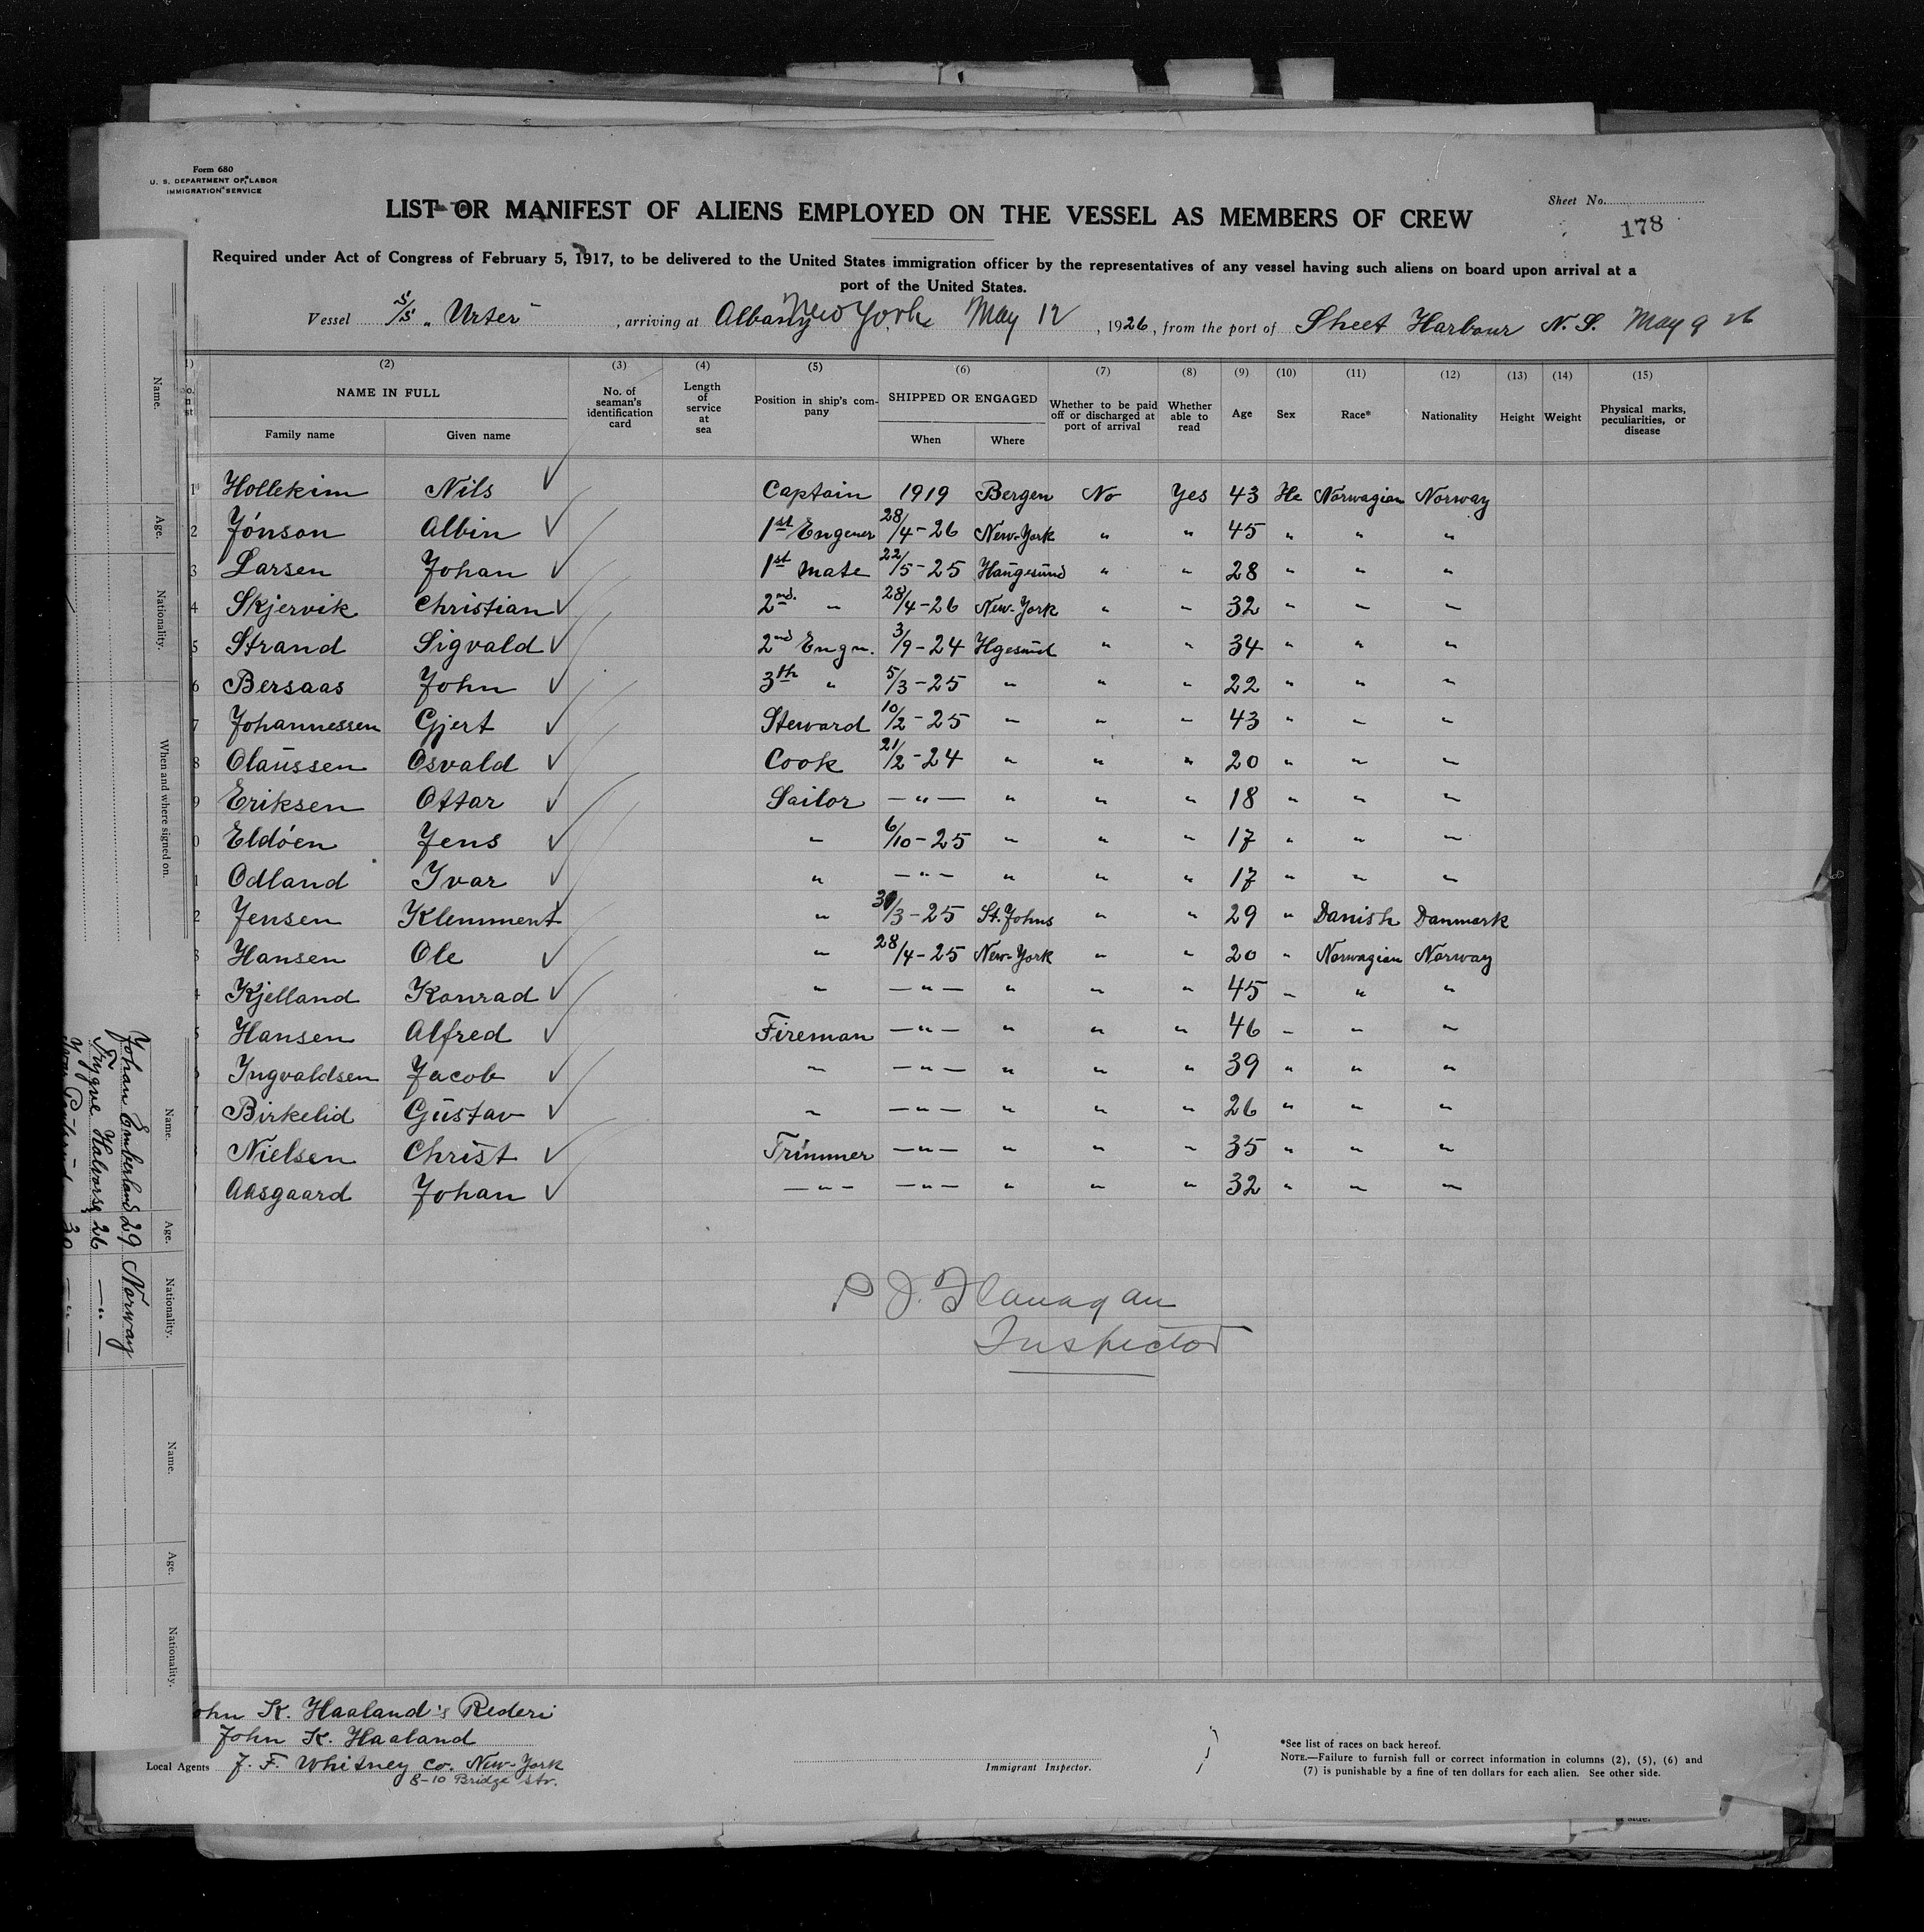 Form 680
U. S. DEPARTMENT OF LABOR
IMMIGRATION SERVICE
Sheet No.
178
LIST OR MANIFEST OF ALIENS EMPLOYED ON THE VESSEL AS MEMBERS OF CREW
Required under Act of Congress of February 5, 1917, to be delivered to the United States immigration officer by the representatives of any vessel having such aliens on board upon arrival at a
port of the United States.
Vessel S/S „Urter" , arriving at Albany New York May 12 , 1926, from the port of Sheet Harbour N. S. May 9 26
(2) (3) (4) (5) (6) (7) (8) (9) (10) (11) (12) (13) (14) (15)
NAME IN FULL
Family name Given name
No. of seaman's identification card
Length of service at sea
Position in ship's company
SHIPPED OR ENGAGED
When Where
Whether to be paid off or discharged at port of arrival
Whether able to read
Age Sex Race* Nationality Height Weight
Physical marks, peculiarities, or disease
1 Hollekim Nils ✓ Captain 1919 Bergen No Yes 43 He Norwagian Norway
2 Jónson Albin ✓ 1st Engener 28/4-26 New-York " " 45 " " "
3 Larsen Johan ✓ 1st Mate 22/5-25 Haugesund " " 28 " " "
4 Skjervik Christian ✓ 2nd. " 28/4-26 New-York " " 32 " " "
5 Strand Sigvald ✓ 2nd Engn. 3/9-24 Hgesund " " 34 " " "
6 Bersaas John ✓ 3th " 5/3-25 " " " 22 " " "
7 Johannessen Gjert ✓ Steward 10/2-25 " " " 43 " " "
8 Olaussen Osvald ✓ Cook 21/2-24 " " " 20 " " "
9 Eriksen Ottar ✓ Sailor —"— " " " 18 " " "
0 Eldóen Jens ✓ " 6/10-25 " " " 17 " " "
1 Odland Ivar ✓ " —"— " " " 17 " " "
2 Jensen Klemment ✓ " /3-25 St. Johns " " 29 " Danish Danmark
3 Hansen Ole ✓ " 28/4-25 New-York " " 20 " Norwagian Norway
4 Kjelland Konrad ✓ " —"— " " " 45 " " "
5 Hansen Alfred ✓ Fireman —"— " " " 46 " " "
Ingvaldsen Jacob ✓ " —"— " " " 39 " " "
7 Birkelid Gustav ✓ " —"— " " " 26 " " "
Nielsen Christ ✓ Trimmer —"— " " " 35 " " "
Aasgaard Johan ✓ —"— —"— " " " 32 " " "
P J. Flanagan
Inspector
ohn K. Haaland's Rederi
John K. Haaland
Local Agents J. F. Whitney Co. New-York
8-10 Bridge str.
Immigrant Inspector.
*See list of races on back hereof.
NOTE.—Failure to furnish full or correct information in columns (2), (5), (6) and
(7) is punishable by a fine of ten dollars for each alien. See other side.
Name.
Age.
Nationality.
When and where signed on.
Name. Age. Nationality.
Johan Emberland 29 Norway
Trygve Halvorse 26 —"—
30 —"—
Name.
Age.
Nationality.